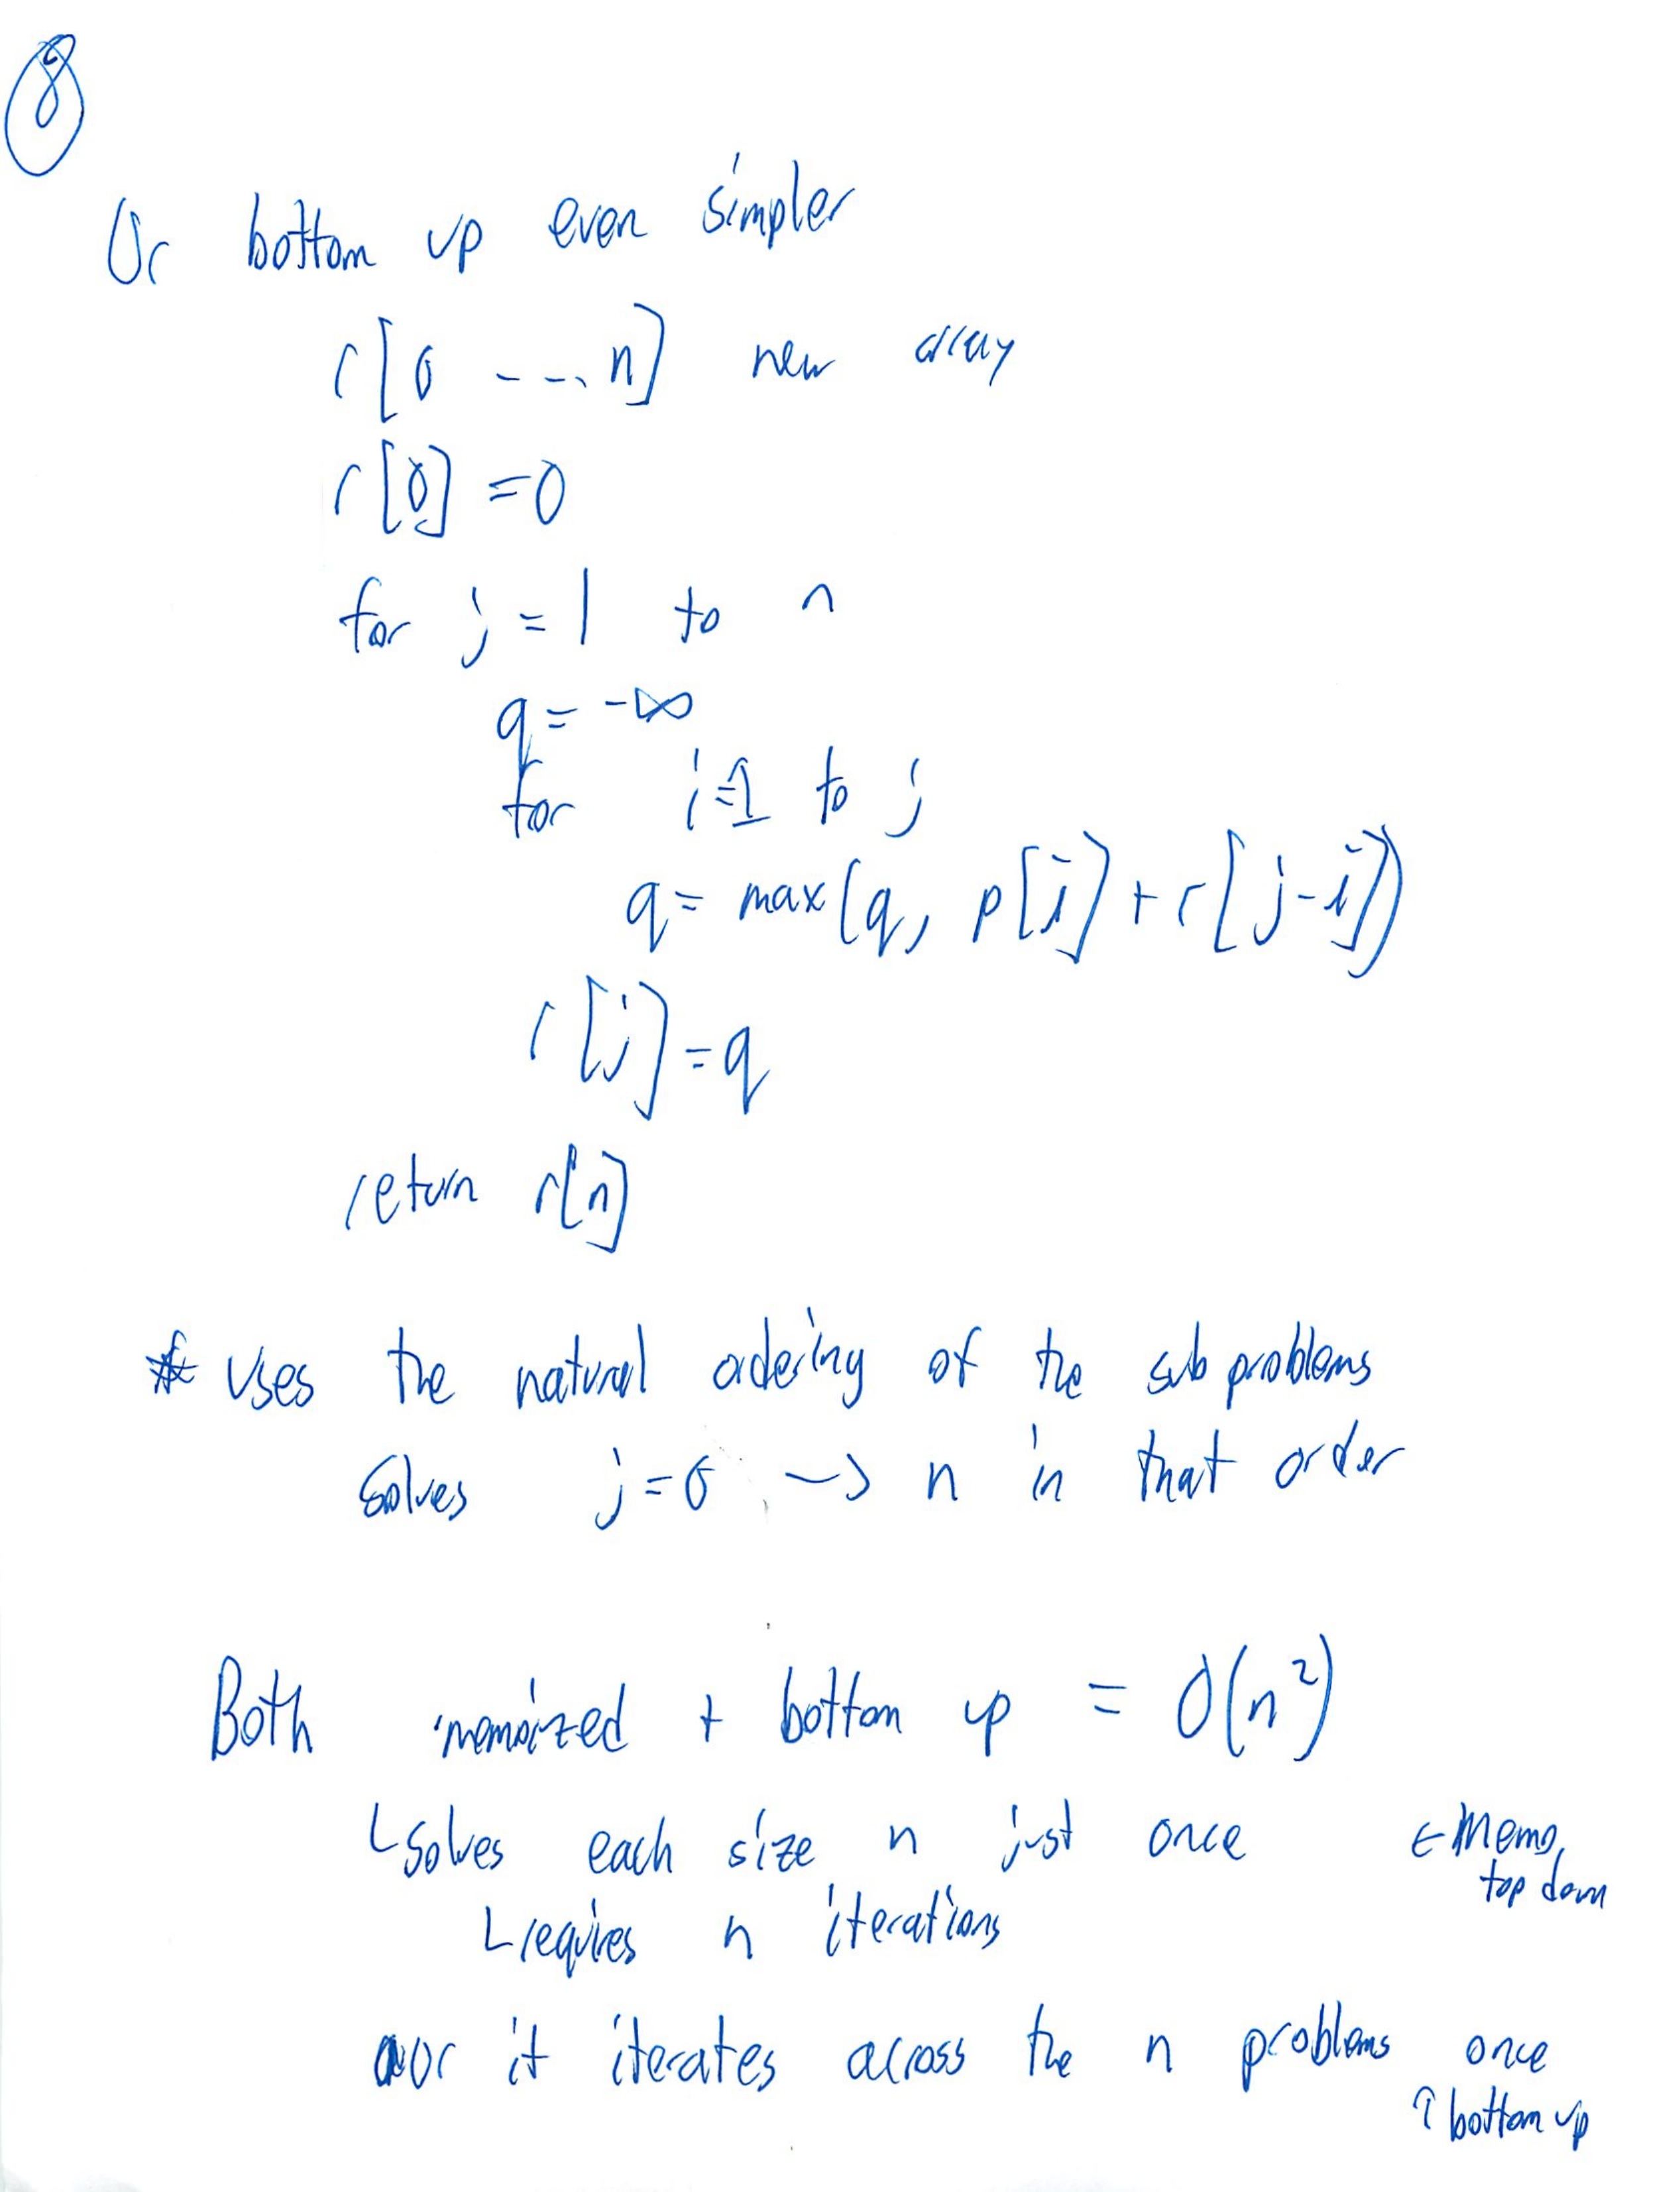 8
Or bottom up even simpler
r[0 ---. n] new array
r[0] = 0
for j = 1 to n
q = -∞
for i=1 to j
q = max(q, p[i] + r[j-i])
r[j] = q
return r[n]
* uses the natural ordering of the subproblems
solves j = 0 → n in that order
Both memoized + bottom up = O(n²)
└ solves each size n just once ← memo, top down
└ requires n iterations
or it iterates across the n problems once
↑ bottom up